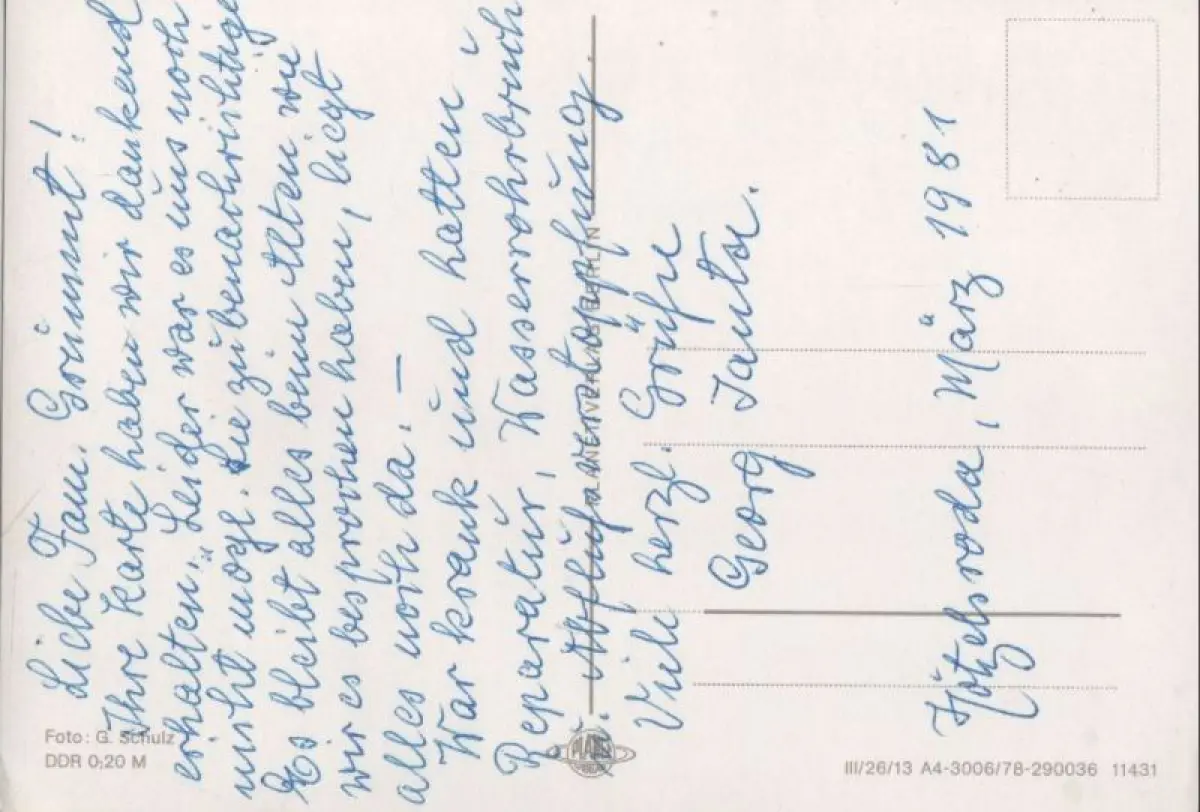 Liebe Fam. Grimmt!
Ihre Karte haben wir dankend
erhalten. Leider war es uns noch
nicht mögl. Sie zu benachrichtige
Es bleibt alles beim Alten wie
wir es besprochen haben, liegt
alles noch da. —
War krank und hatten
Reparatur, Wasserrohrbruch
u. Abflußverstopfung.
Viele herzl. Grüße
Georg
Hötzelsroda, März 1981
Foto: G. Schulz
DDR 0,20 M
PLANET-VERLAG BERLIN
III/26/13 A4-3006/78-290036 11431